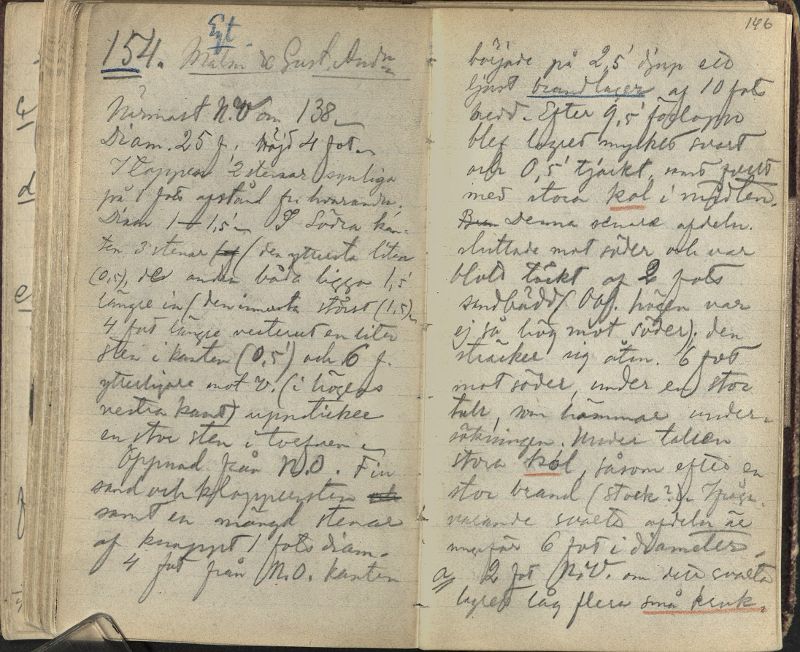 154. Eyt.
Malm & Gust. Andn
Närmast N.V om 138.
Diam. 25 f. Höjd 4 fot.
I toppen 2 stenar synliga
på 1 fots afstånd fr. hvarandra.
Diam 1 1,5. I Södra kan-
ten 3 stenar (den yttersta liten
(0,5), de andra båda ligga 1,5'
längre in (den innersta störst (1,5).
4 fot längre vesterut en liten
sten i kanten (0,5') och 6 f.
ytterligare mot V. (i högens
vestra kant) uppsticker
en stor sten i tvefsen.
Öppnad från N.O. Fin
sand och klappersten
samt en mängd stenar
af knappt 1 fots diam.
4 fot från N.O. kanten
146
började på 2,5' djup ett
ljust brandlager af 10 fots
bredd. Efter 9,5' förlopp
blef lagret mycket svart
och 0,5' tjockt, samt
med stora kol i midten.
Denna senare afdeln.
sluttade mot söder och var
blott täckt af 2 fots
sandbädd (Obs. högen var
ej så hög mot söder); den
sträcker sig åtm. 6 fot
mot söder, under en stor
tall, som hämmar under-
sökningen. Under tallen
stora kol, såsom efter en
stor brand (stock?). Ifråga-
varande svarta afdeln är
ungefär 6 fot i diameter.
a) 2 fot N.V. om det svarta
lagret låg flera små kruk.